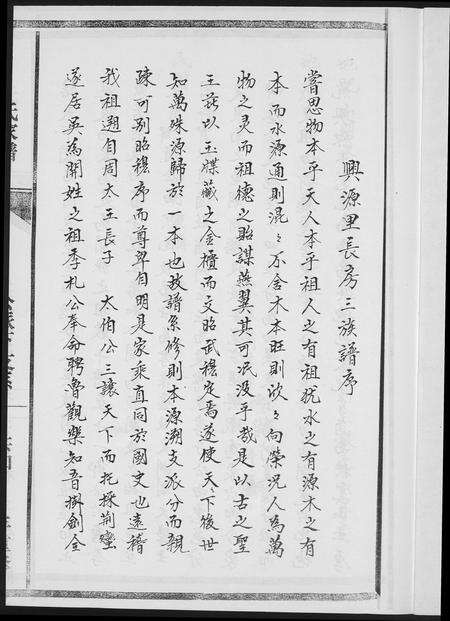 興源里長房三族譜序
嘗思物本乎天人本乎祖人之有祖犹水之有源木之有
本而水源通則混〻不舍木本旺則欣〻向榮況人為萬
物之灵而祖德之貽謀燕翼其可泯没乎哉是以古之聖
王蓻以玉牒藏之金櫃而文昭武穆定焉遂使天〻下後世
知萬殊源歸於一本也故譜系修則本源溯支派分而親
疎可别昭穆序而尊卑自明是家乘直同於國史也遠稽
我祖遡自周太王長子 太伯公三讓天下而托採荆蠻
遂居吳為開姓之祖季札公奉命聘魯觀樂知音掛劍全
氏家譜